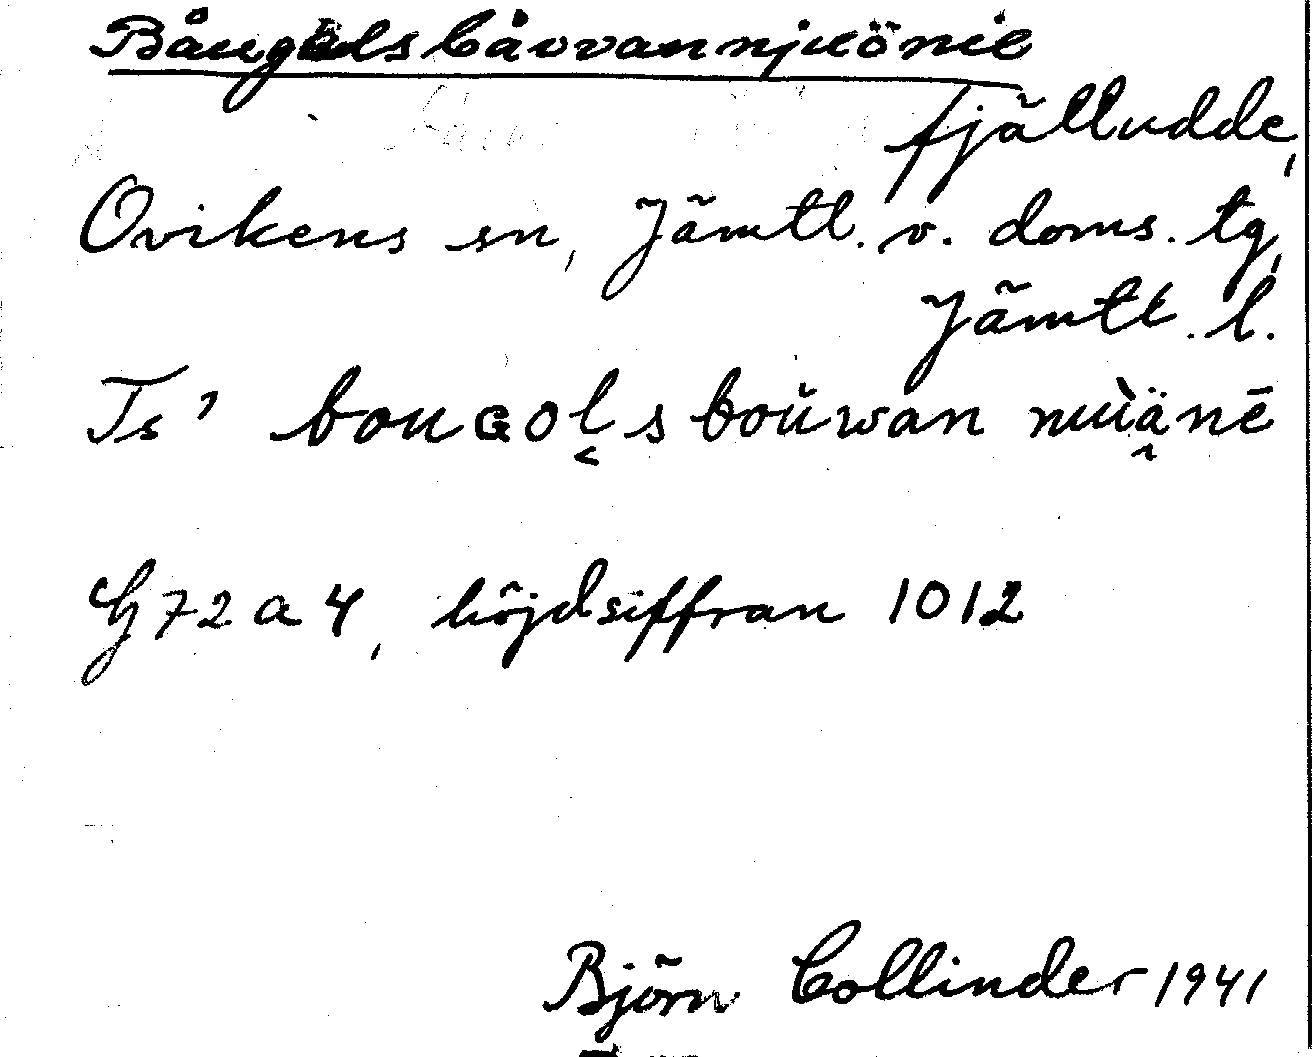 Bångålsbåvvannjuönie
fjälludde,
Ovikens sn, Jämtl. v. doms. tg,
Jämtl. l.
Ts' bouɢol̬s boŭwan nuìä̭nē
G 72 a 4, höjdsiffran 1012
Björn Collinder 1941